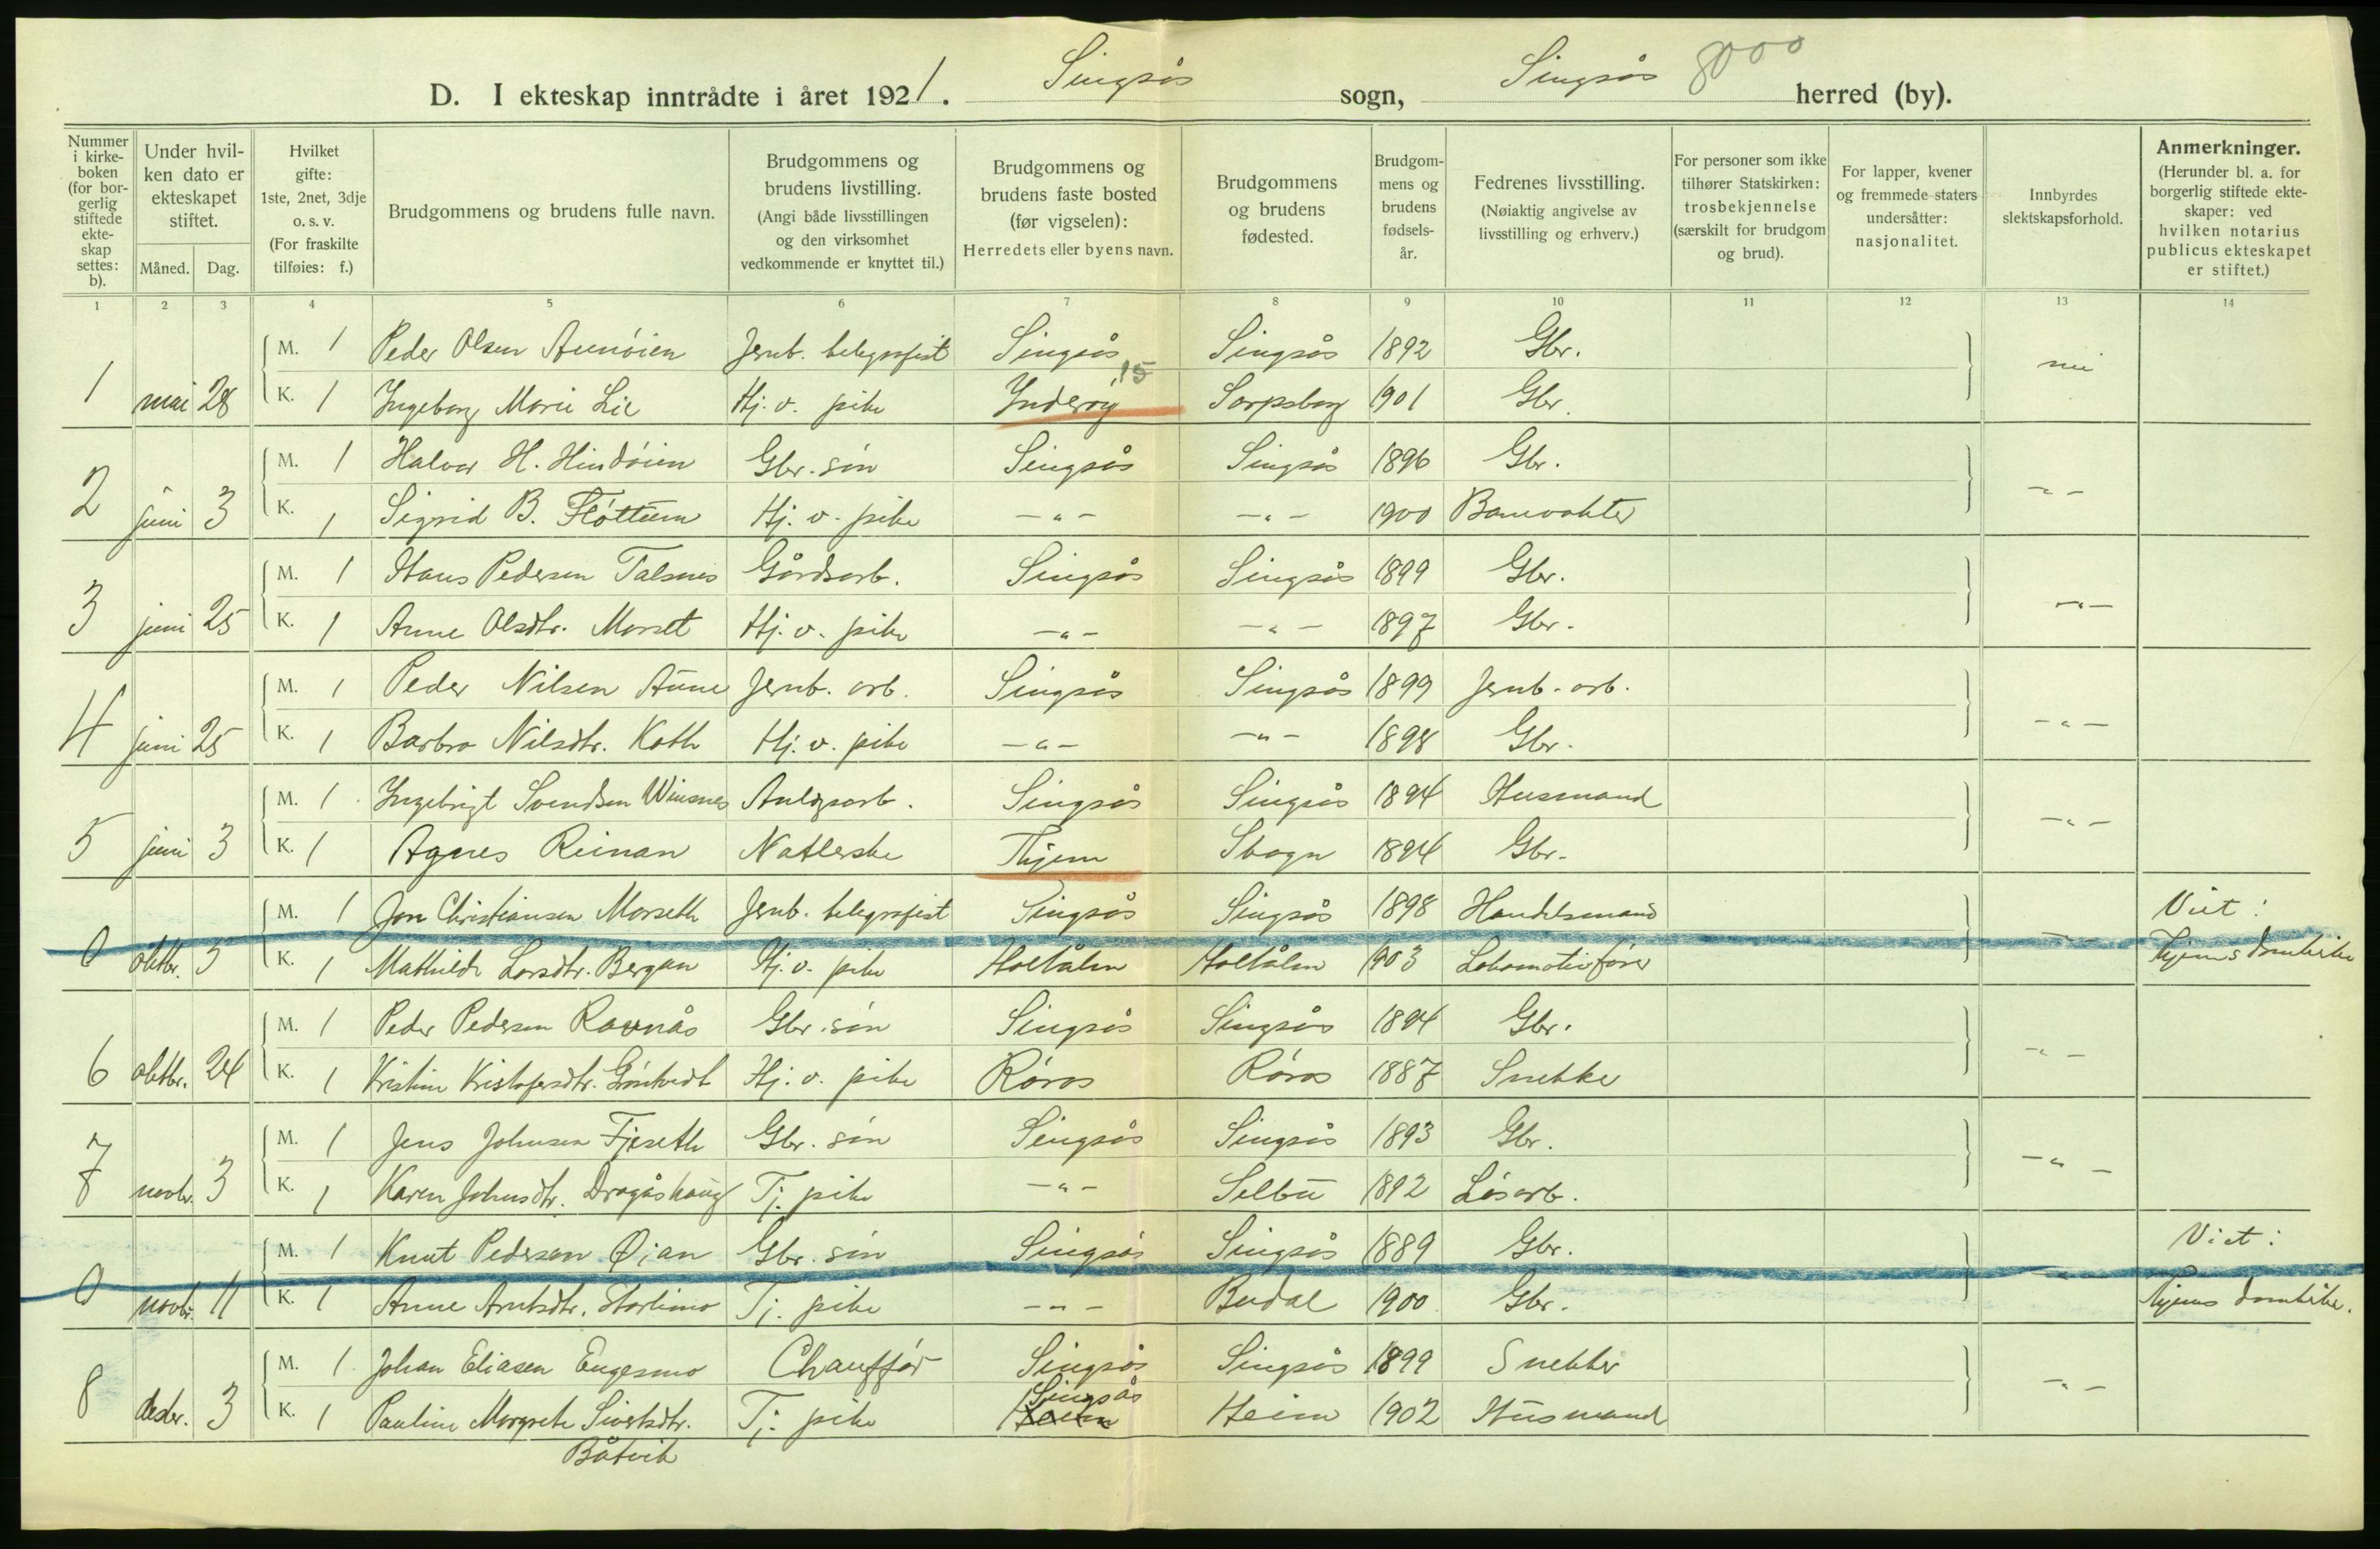 D. I ekteskap inntrådte i året 1921. Singsås sogn, Singsås 8000 herred (by).
Nummer i kirkeboken (for borgerlig stiftede ekteskap settes: b).
Under hvilken dato er ekteskapet stiftet.
Måned. Dag.
Hvilket gifte: 1ste, 2net, 3dje o. s. v. (For fraskilte tilføies: f.)
Brudgommens og brudens fulle navn.
Brudgommens og brudens livstilling. (Angi både livsstillingen og den virksomhet vedkommende er knyttet til.)
Brudgommens og brudens faste bosted (før vigselen): Herredets eller byens navn.
Brudgommens og brudens fødested.
Brudgommens og brudens fødselsår.
Fedrenes livsstilling. (Nøiaktig angivelse av livsstilling og erhverv.)
For personer som ikke tilhører Statskirken: trosbekjennelse (særskilt for brudgom og brud).
For lapper, kvener og fremmede staters undersåtter: nasjonalitet.
Innbyrdes slektskapsforhold.
Anmerkninger. (Herunder bl. a. for borgerlig stiftede ekteskaper: ved hvilken notarius publicus ekteskapet er stiftet.)
1 2 3 4 5 6 7 8 9 10 11 12 13 14
M. 1 Peder Olsen Aunøien Jernb. telegrafist Singsås Singsås 1892 Gbr.
1 mai 28 K. 1 Ingeborg Marie Lie Hj. v. pike Inderøy 15 Sarpsborg 1901 Gbr. nei
M. 1 Halvor H. Hindøien Gbr. søn Singsås Singsås 1896 Gbr.
2 juni 3 K. 1 Sigrid B. Fløttum Hj. v. pike -"- -"- 1900 Banevokter -"-
M. 1 Hans Pedersen Talsnes Gårdsarb. Singsås Singsås 1899 Gbr.
3 juni 25 K. 1 Anne Olsdtr. Morset Hj. v. pike -"- -"- 1897 Gbr. -"-
M. 1 Peder Nilsen Aune Jernb. arb. Singsås Singsås 1899 Jernb. arb.
4 juni 25 K. 1 Barbro Nilsdtr. Koth Hj. v. pike -"- -"- 1898 Gbr. -"-
M. 1 Ingebrigt Svendsen Winsnes Anlegsarb. Singsås Singsås 1894 Husmand
5 juni 3 K. 1 Agnes Reinan Natlerske Thjem Skogn 1894 Gbr. -"-
M. 1 Jon Christiansen Morseth Jernb. telegrafist Singsås Singsås 1898 Handelsmand Viet:
0 oktbr. 5 K. 1 Mathilde Larsdtr. Bergan Hj. v. pike Holtålen Holtålen 1903 Lokomotivfører -"- Thjems domkirke
M. 1 Peder Pedersen Ravnås Gbr. søn Singsås Singsås 1894 Gbr.
6 oktbr. 24 K. 1 Kristine Kristofersdtr. Grøntvedt Hj. v. pike Røros Røros 1887 Snekker -"-
M. 1 Jens Johnsen Fjeseth Gbr. søn Singsås Singsås 1893 Gbr.
7 novbr. 3 K. 1 Karen Johnsdtr. Dragåshaug Tj. pike -"- Selbu 1892 Løsarb. -"-
M. 1 Knut Pedersen Øian Gbr. søn Singsås Singsås 1889 Gbr. Viet:
0 novbr. 11 K. 1 Anne Arntsdtr. Storlimo Tj. pike -"- Budal 1900 Gbr. Thjems domkirke.
M. 1 Johan Eliasen Engesmo Chauffør Singsås Singsås 1899 Snekker
8 desbr. 3 K. 1 Pauline Margrete Sivertsdtr. Tj. pike Singsås Heim 1902 Husmand -"-
Båtvik